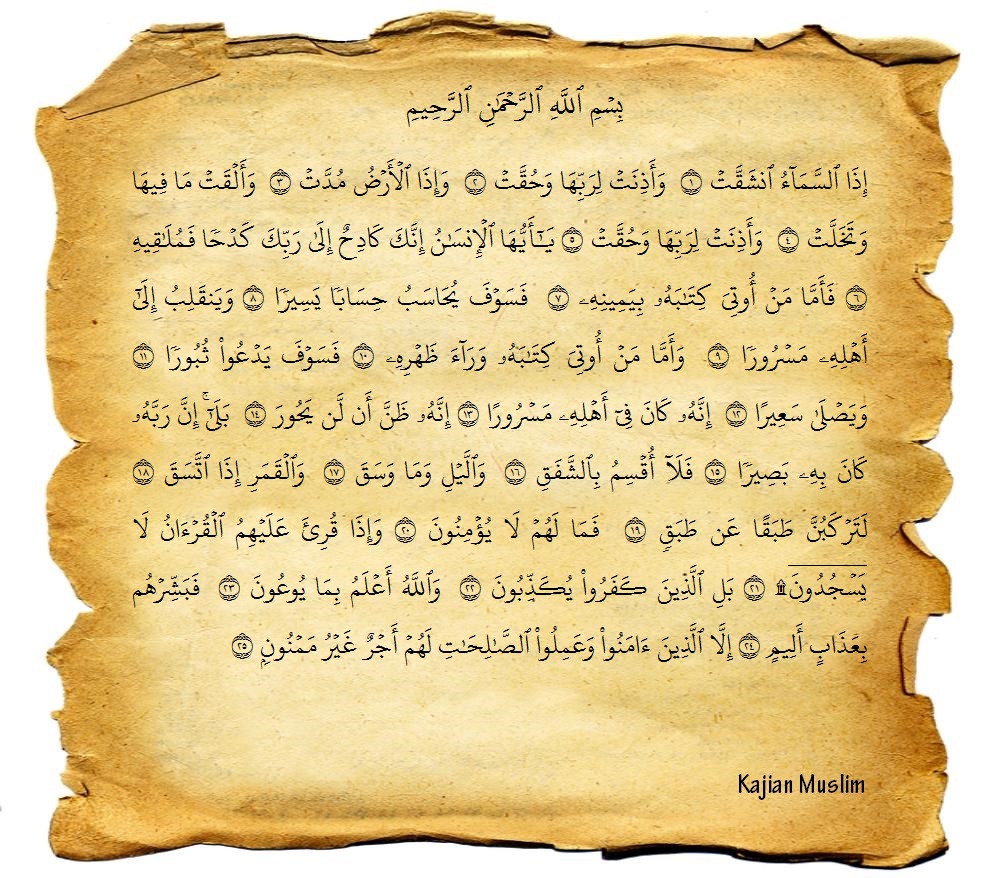 بِسۡمِ ٱللَّهِ ٱلرَّحۡمَٰنِ ٱلرَّحِيمِ
إِذَا ٱلسَّمَآءُ ٱنشَقَّتۡ ١ وَأَذِنَتۡ لِرَبِّهَا وَحُقَّتۡ ٢ وَإِذَا ٱلۡأَرۡضُ مُدَّتۡ ٣ وَأَلۡقَتۡ مَا فِيهَا
وَتَخَلَّتۡ ٤ وَأَذِنَتۡ لِرَبِّهَا وَحُقَّتۡ ٥ يَٰٓأَيُّهَا ٱلۡإِنسَٰنُ إِنَّكَ كَادِحٌ إِلَىٰ رَبِّكَ كَدۡحٗا فَمُلَٰقِيهِ
٦ فَأَمَّا مَنۡ أُوتِيَ كِتَٰبَهُۥ بِيَمِينِهِۦ ٧ فَسَوۡفَ يُحَاسَبُ حِسَابٗا يَسِيرٗا ٨ وَيَنقَلِبُ إِلَىٰٓ
أَهۡلِهِۦ مَسۡرُورٗا ٩ وَأَمَّا مَنۡ أُوتِيَ كِتَٰبَهُۥ وَرَآءَ ظَهۡرِهِۦ ١٠ فَسَوۡفَ يَدۡعُواْ ثُبُورٗا ١١
وَيَصۡلَىٰ سَعِيرًا ١٢ إِنَّهُۥ كَانَ فِيٓ أَهۡلِهِۦ مَسۡرُورًا ١٣ إِنَّهُۥ ظَنَّ أَن لَّن يَحُورَ ١٤ بَلَىٰٓۚ إِنَّ رَبَّهُۥ
كَانَ بِهِۦ بَصِيرٗا ١٥ فَلَآ أُقۡسِمُ بِٱلشَّفَقِ ١٦ وَٱلَّيۡلِ وَمَا وَسَقَ ١٧ وَٱلۡقَمَرِ إِذَا ٱتَّسَقَ ١٨
لَتَرۡكَبُنَّ طَبَقًا عَن طَبَقٖ ١٩ فَمَا لَهُمۡ لَا يُؤۡمِنُونَ ٢٠ وَإِذَا قُرِئَ عَلَيۡهِمُ ٱلۡقُرۡءَانُ لَا
يَسۡجُدُونَۤ۩ ٢١ بَلِ ٱلَّذِينَ كَفَرُواْ يُكَذِّبُونَ ٢٢ وَٱللَّهُ أَعۡلَمُ بِمَا يُوعُونَ ٢٣ فَبَشِّرۡهُم
بِعَذَابٍ أَلِيمٍ ٢٤ إِلَّا ٱلَّذِينَ ءَامَنُواْ وَعَمِلُواْ ٱلصَّٰلِحَٰتِ لَهُمۡ أَجۡرٌ غَيۡرُ مَمۡنُونِۭ ٢٥
Kajian Muslim